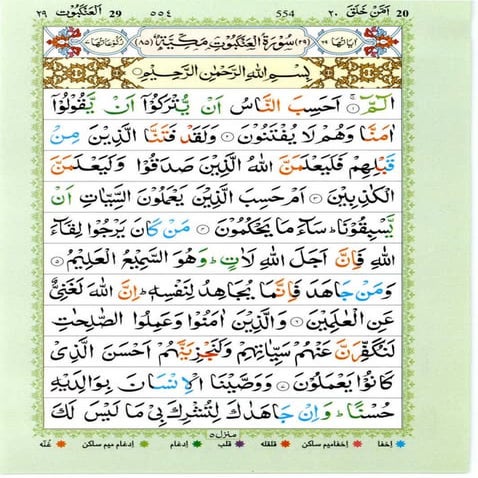 اٰمَّنْ خَلَقَ ٢٠ 20 554 ٥٥٤ اَلْعَنْكَبُوْت ٢٩ 29
اٰيَاتُهَا ٦٩ (٢٩) سُوْرَةُ الْعَنْكَبُوْتِ مَكِّيَّةٌ (٨٥) رُكُوْعَاتُهَا ٧
بِسْمِ اللّٰهِ الرَّحْمٰنِ الرَّحِيْمِ
الٓمّٓ ۚ‏ ١ اَحَسِبَ النَّاسُ اَنْ يُّتْرَكُوْۤا اَنْ يَّقُوْلُوْۤا
اٰمَنَّا وَهُمْ لَا يُفْتَنُوْنَ ٢ وَلَقَدْ فَتَنَّا الَّذِيْنَ مِنْ
قَبْلِهِمْ فَلَيَعْلَمَنَّ اللّٰهُ الَّذِيْنَ صَدَقُوْا وَلَيَعْلَمَنَّ
الْكٰذِبِيْنَ ٣ اَمْ حَسِبَ الَّذِيْنَ يَعْمَلُوْنَ السَّيِّاٰتِ اَنْ
يَّسْبِقُوْنَا ؕ سَآءَ مَا يَحْكُمُوْنَ ٤ مَنْ كَانَ يَرْجُوْا لِقَآءَ
اللّٰهِ فَاِنَّ اَجَلَ اللّٰهِ لَاٰتٍ ؕ وَهُوَ السَّمِيْعُ الْعَلِيْمُ ٥
وَمَنْ جَاهَدَ فَاِنَّمَا يُجَاهِدُ لِنَفْسِهٖ ؕ اِنَّ اللّٰهَ لَغَنِىٌّ
عَنِ الْعٰلَمِيْنَ ٦ وَالَّذِيْنَ اٰمَنُوْا وَعَمِلُوا الصّٰلِحٰتِ
لَنُكَفِّرَنَّ عَنْهُمْ سَيِّاٰتِهِمْ وَلَنَجْزِيَنَّهُمْ اَحْسَنَ الَّذِىْ
كَانُوْا يَعْمَلُوْنَ ٧ وَوَصَّيْنَا الْاِنْسَانَ بِوَالِدَيْهِ
حُسْنًا ؕ وَاِنْ جَاهَدٰكَ لِتُشْرِكَ بِىْ مَا لَيْسَ لَكَ
منزل ٥
اخفا اخفا میم ساکن قلقلہ قلب ادغام ادغام میم ساکن غنّہ